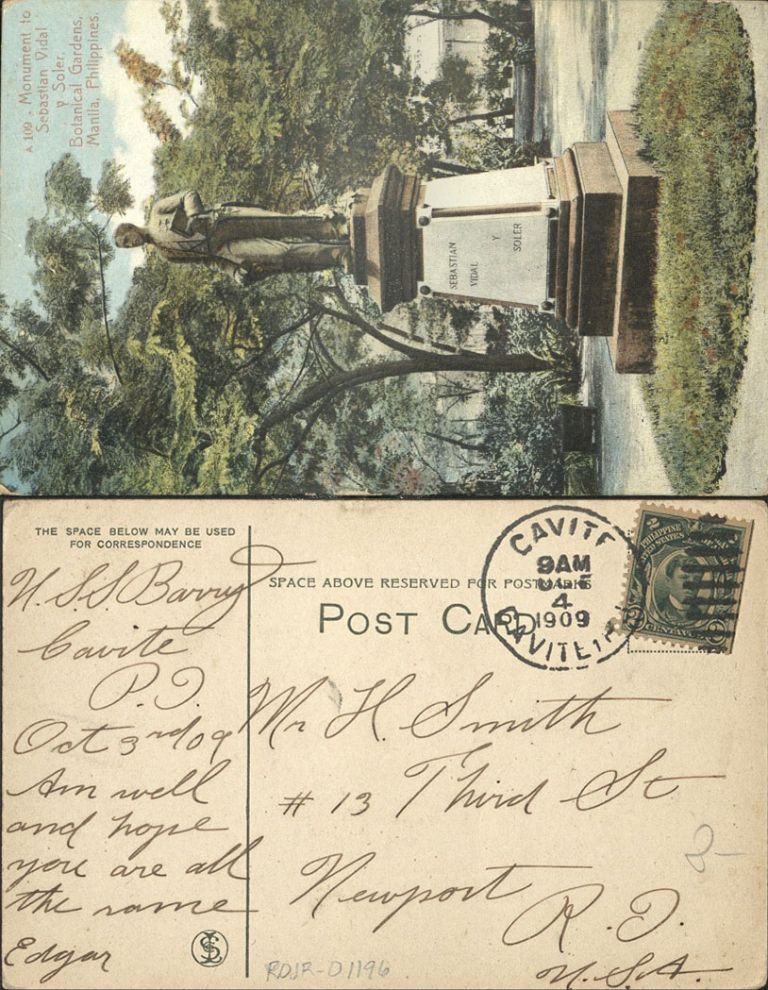 A 109 - Monument to
Sebastian Vidal
y Soler,
Botanical Gardens,
Manila, Philippines.
SEBASTIAN
VIDAL
Y
SOLER
THE SPACE BELOW MAY BE USED
FOR CORRESPONDENCE
U.S.S. Barry
Cavite
P.I.
Oct 3rd 09
Am well
and hope
you are all
the same
Edgar
SPACE ABOVE RESERVED FOR POSTMARKS
POST CARD
CAVITE
9AM
4
1909
CAVITE, P.I.
2 PHILIPPINE
UNITED STATES
CENTAVOS
Mr H. Smith
# 13 Third St
Newport
R.I.
U.S.A.
RDJR-D1196